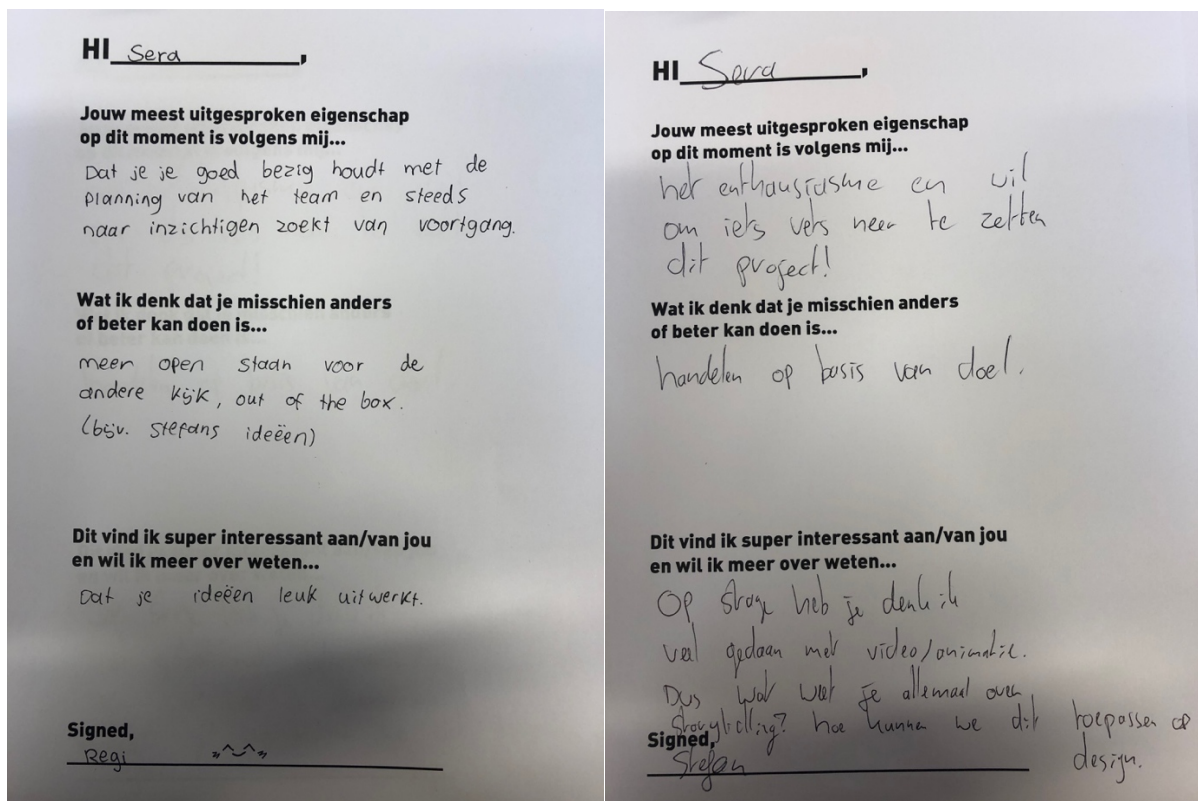 HI Sera,
Jouw meest uitgesproken eigenschap
op dit moment is volgens mij...
Dat je je goed bezig houdt met de
planning van het team en steeds
naar inzichtigen zoekt van voortgang.
Wat ik denk dat je misschien anders
of beter kan doen is...
meer open staan voor de
andere kijk, out of the box.
(bijv. stefans ideeën)
Dit vind ik super interessant aan/van jou
en wil ik meer over weten...
Dat je ideeën leuk uitwerkt.
Signed,
Regi
HI Sera,
Jouw meest uitgesproken eigenschap
op dit moment is volgens mij...
het enthausiasme en wil
om iets vers neer te zetten
dit project!
Wat ik denk dat je misschien anders
of beter kan doen is...
handelen op basis van doel.
Dit vind ik super interessant aan/van jou
en wil ik meer over weten...
Op stage heb je denk ik
veel gedaan met video/animatie.
Dus wat weet je allemaal over
storytelling? hoe kunnen we dit toepassen op
design.
Signed,
Stefan